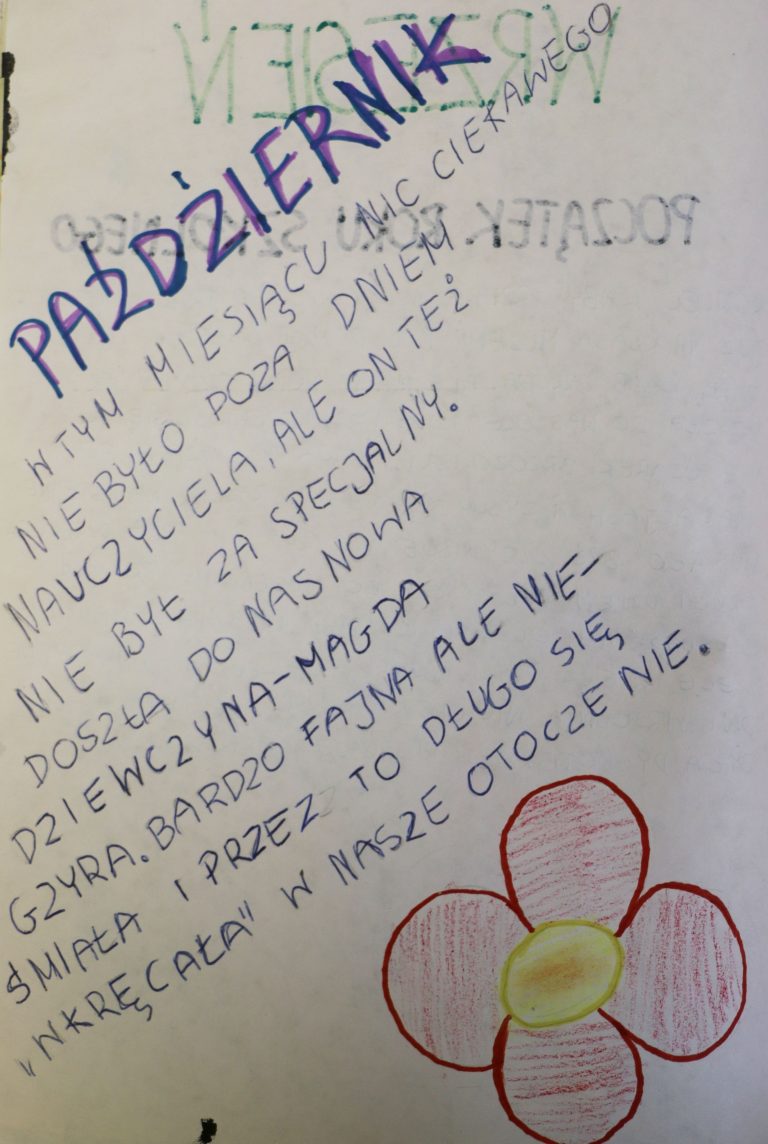 PAŹDZIERNIK
W TYM MIESIĄCU NIC CIEKAWEGO
NIE BYŁO POZA DNIEM
NAUCZYCIELA, ALE ON TEŻ
NIE BYŁ ZA SPECJALNY.
DOSZŁA DO NAS NOWA
DZIEWCZYNA-MAGDA
GZYRA. BARDZO FAJNA ALE NIE-
ŚMIAŁA I PRZEZ TO DŁUGO SIĘ
„WKRĘCAŁA" W NASZE OTOCZENIE.
WRZESIEŃ
POCZĄTEK ROKU SZKOLNEGO